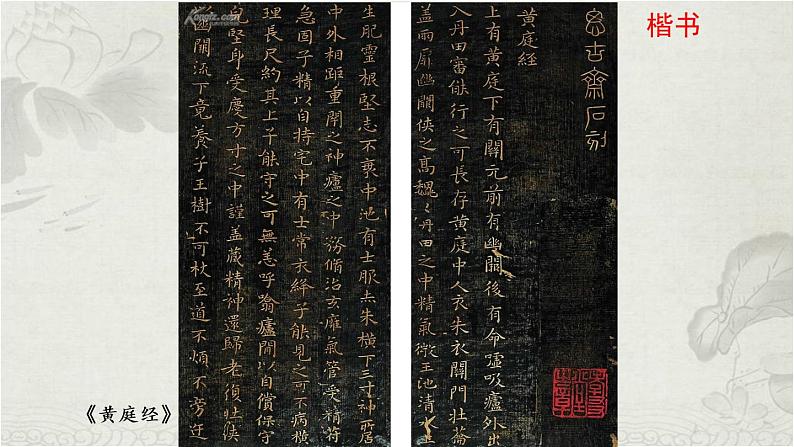 楷书
思古齋石刻
黄庭经
上有黄庭下有關元前有幽闕後有命嘘吸廬外出
入丹田審能行之可長存黄庭中人衣朱衣關門壮籥
盖兩扉幽闕侠之高魏〻丹田之中精氣微王池清水上
生肥靈根堅志不衰中池有士服赤朱横下三寸神所居
中外相距重閉之神廬之中務脩治玄廱氣管受精符
急固子精以自持宅中有士常衣絳子能見之可不病横
理長尺約其上子能守之可無恙呼翕廬閒以自償保守
皃堅身受慶方寸之中謹盖藏精神還歸老復壮侠
幽闕流下竟養子王樹不可杖至道不煩不旁迕
《黄庭经》